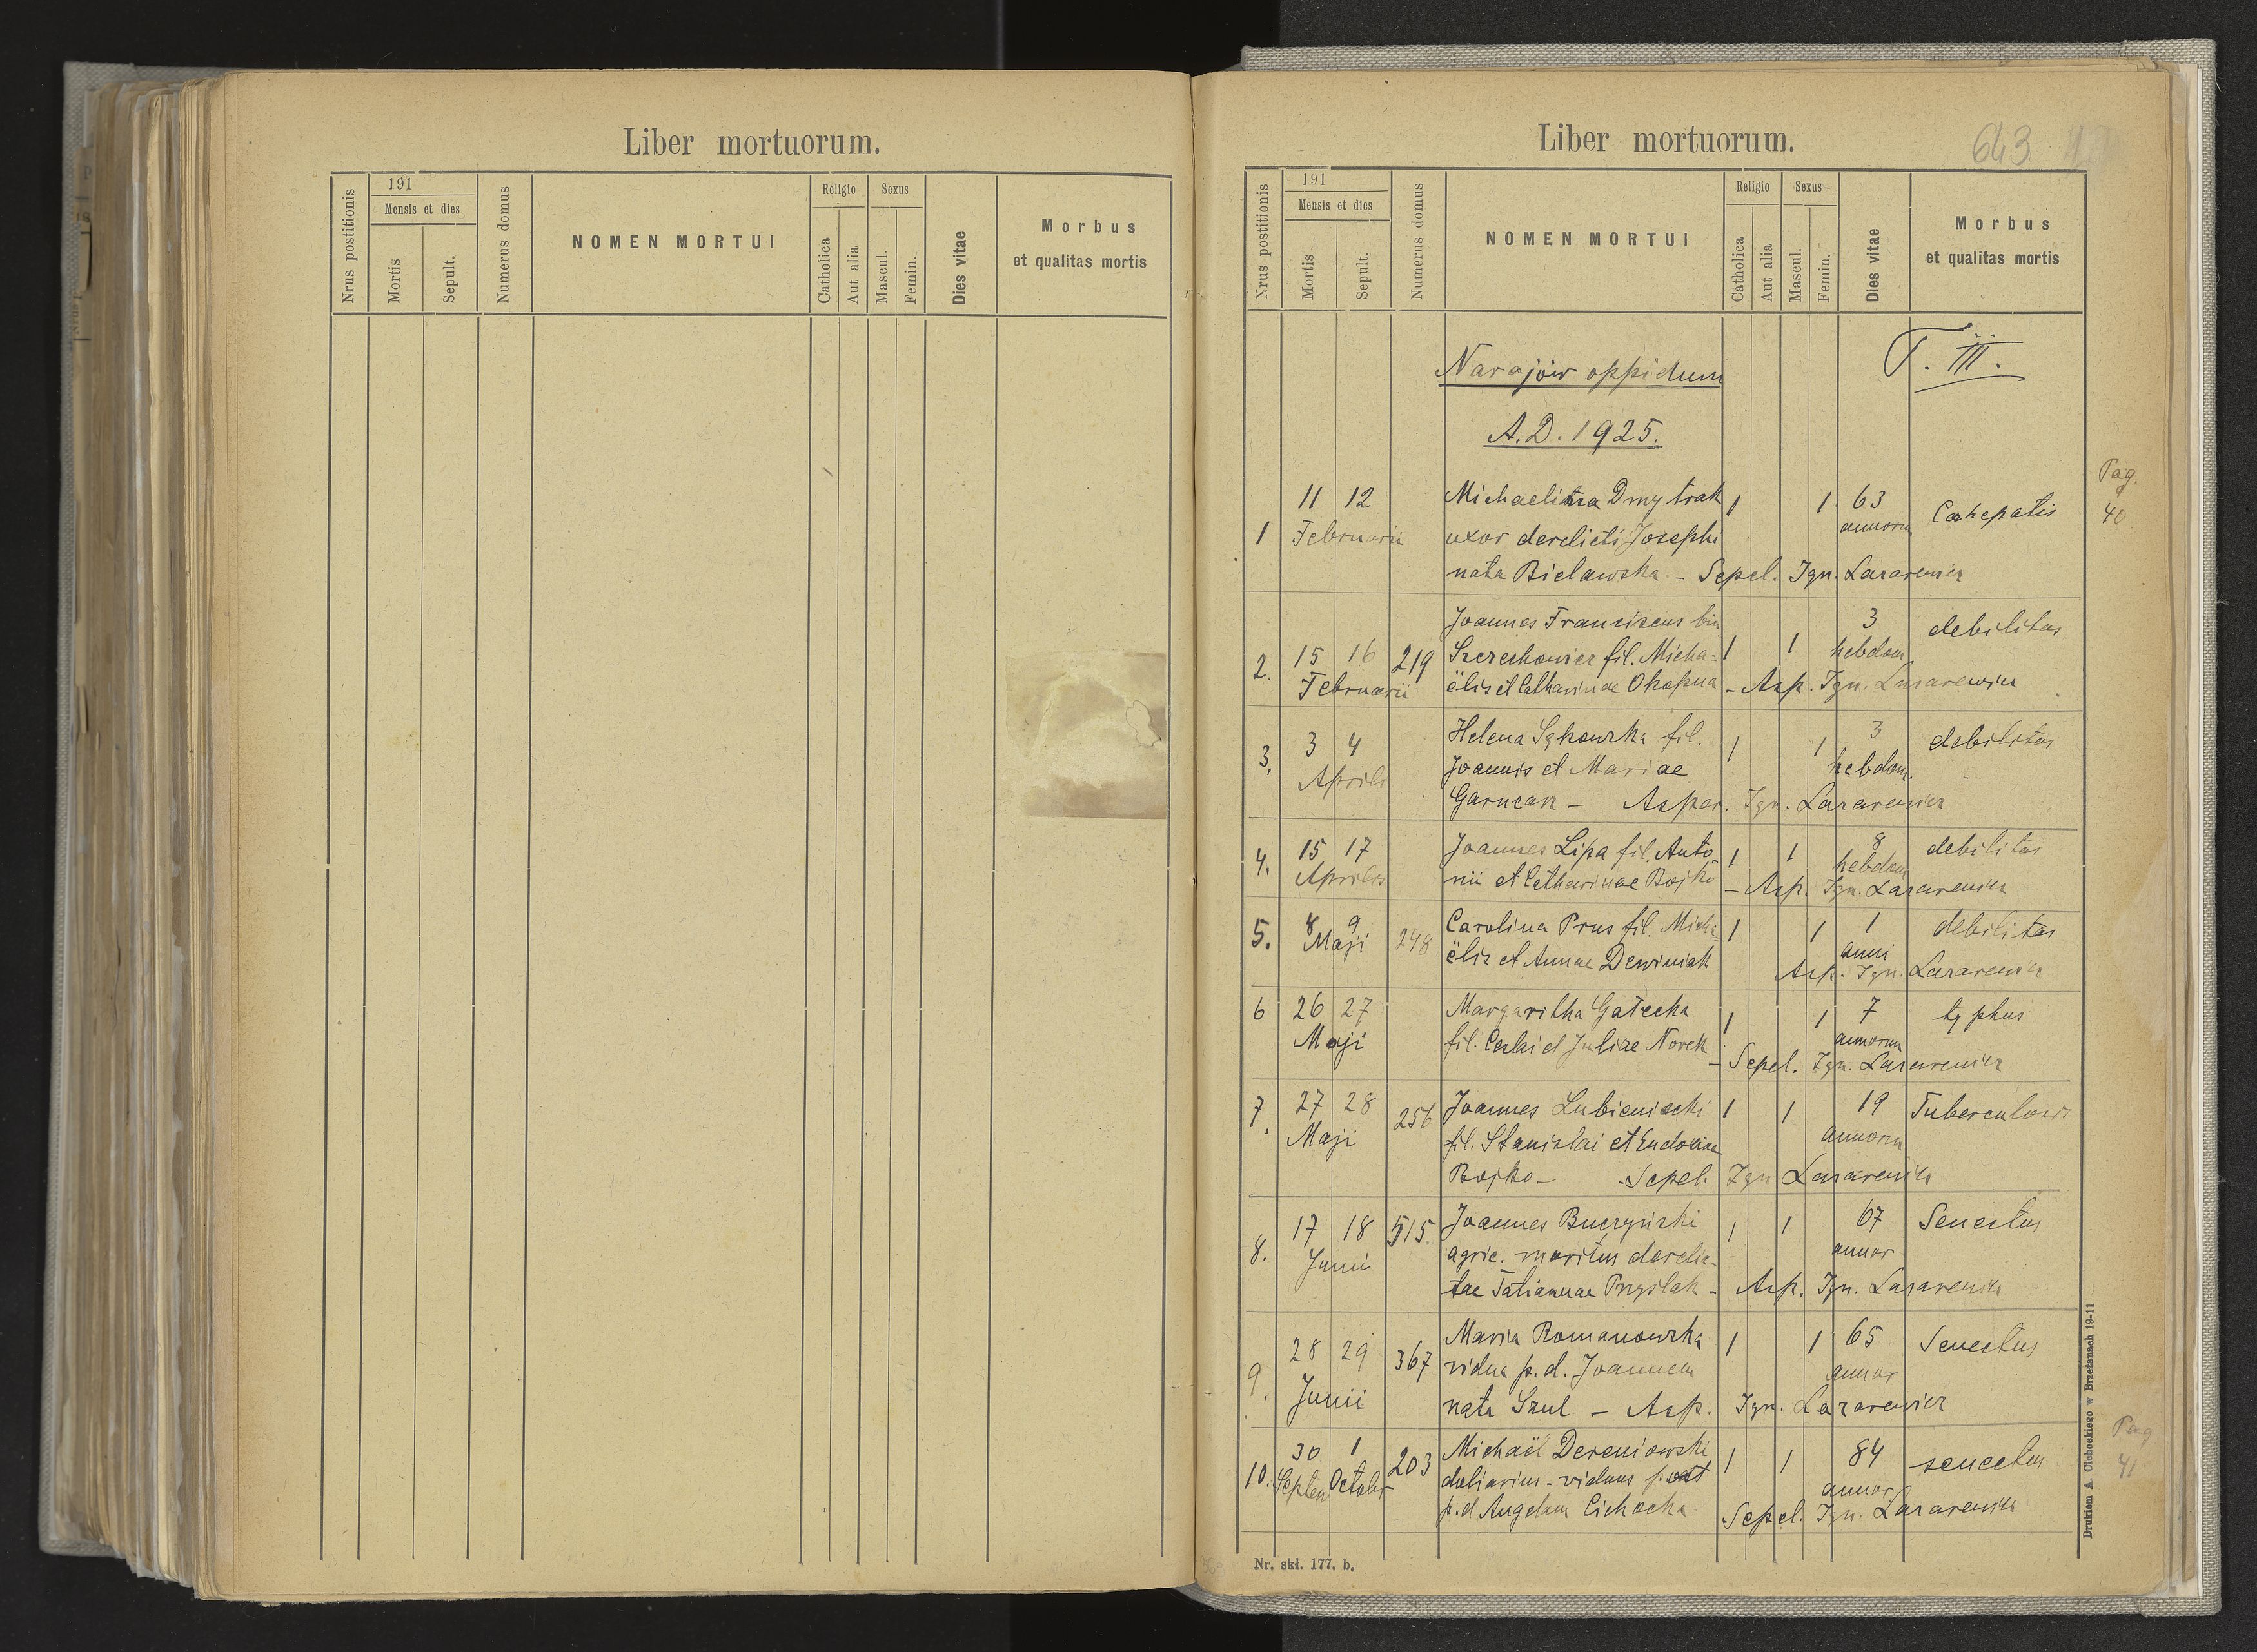 Liber mortuorum.
Nrus postitionis
191
Mensis et dies
Mortis
Sepult.
Numerus domus
NOMEN MORTUI
Religio
Catholica
Aut alia
Sexus
Mascul.
Femin.
Dies vitae
Morbus
et qualitas mortis
Liber mortuorum.
643
Nrus postitionis
191
Mensis et dies
Mortis
Sepult.
Numerus domus
NOMEN MORTUI
Religio
Catholica
Aut alia
Sexus
Mascul.
Femin.
Dies vitae
Morbus
et qualitas mortis
Narajów oppidum
T. III.
A.D. 1925.
Pag.
40
11 12 Michaelina Dmytrak 1 1 63
1 Februarii uxor derelicti Josephi annorum
nata Bielawska - Sepel. Ign. Lazarewicz
Joannes Franciscus bin 3 debilitas
2. 15 16 219 Szerechowicz fil. Micha= 1 1 hebdom
Februarii ëlis et Catharinae Okopna - Asp. Ign. Lazarewicz
3. 3 4 Helena Sękowska fil. 1 1 3 debilitas
Aprilis Joannis et Mariae hebdom.
Garncarz - Asper. Ign. Lazarewicz
4. 15 17 Joannes Lipa fil. Anto- 1 1 8 debilitas
Aprilis nii et Catharinae Bojko hebdom
- Asp. Ign. Lazarewicz
5. 8 9 248 Carolina Prus fil. Micha= 1 1 1 debilitas
Maji ëlis et Annae Dewiniak anni
Asp. Ign. Lazarewicz
6 26 27 Margaritha Gałecka 1 1 7 typhus
Maji fil. et Juliae Norek annorum
- Sepel. Ign. Lazarewicz
7. 27 28 256 Joannes Lubieniecki 1 1 19 Tuberculosis
Maji fil. Stanislai et Eudoxiae annorum
Bojko - Sepel. Ign Lazarewicz
8. 17 18 515 Joannes Buczyński 1 1 67 Senectus
Junii agric. maritus derelic- annor
tae Tatiannae - Asp. Ign. Lazarewicz
9. 28 29 367 Maria Romanowska 1 1 65 Senectus
Junii vidua p.d. Joannem annor
nata Szul - Asp. Ign. Lazarewicz
Pag
41
10. 30 1 203 Michaël Dereniowski 1 1 84 senectus
Septem Octobr doliarius - viduus post annor
p.d Angelam Cichocka Sepel. Ign. Lazarewicz
Nr. skł. 177. b.
Drukiem A. Cichockiego w Brzeżanach 19-11